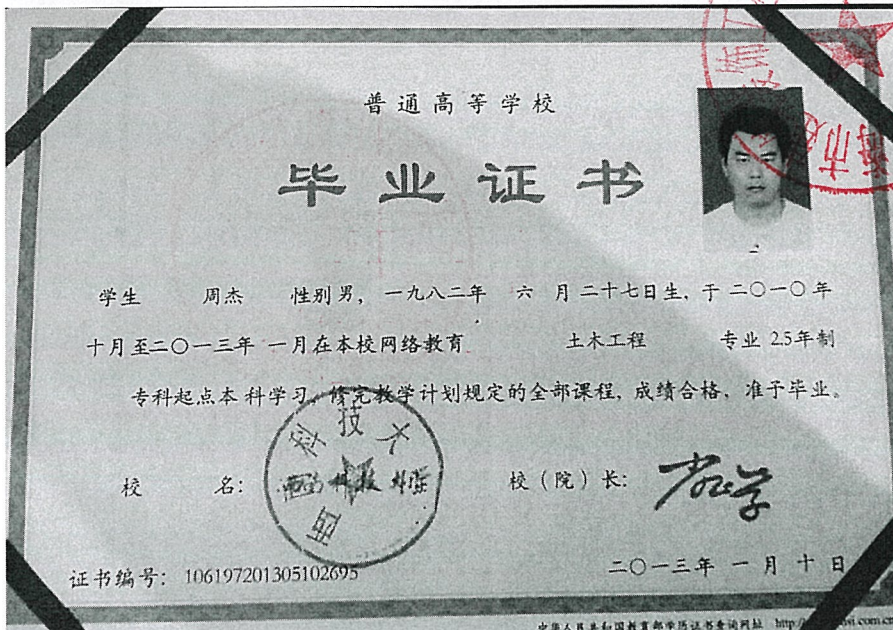 普通高等学校
毕业证书
学生 周杰 性别男，一九八二年 六 月二十七日生，于二〇一〇年
十月至二〇一三年 一月在本校网络教育 土木工程 专业 2.5年制
专科起点本科学习，修完教学计划规定的全部课程，成绩合格，准于毕业。
校 名：西南科技大学
校（院）长：
证书编号：106197201305102695
二〇一三年 一 月 十 日
中华人民共和国教育部学历证书查询网址 http://